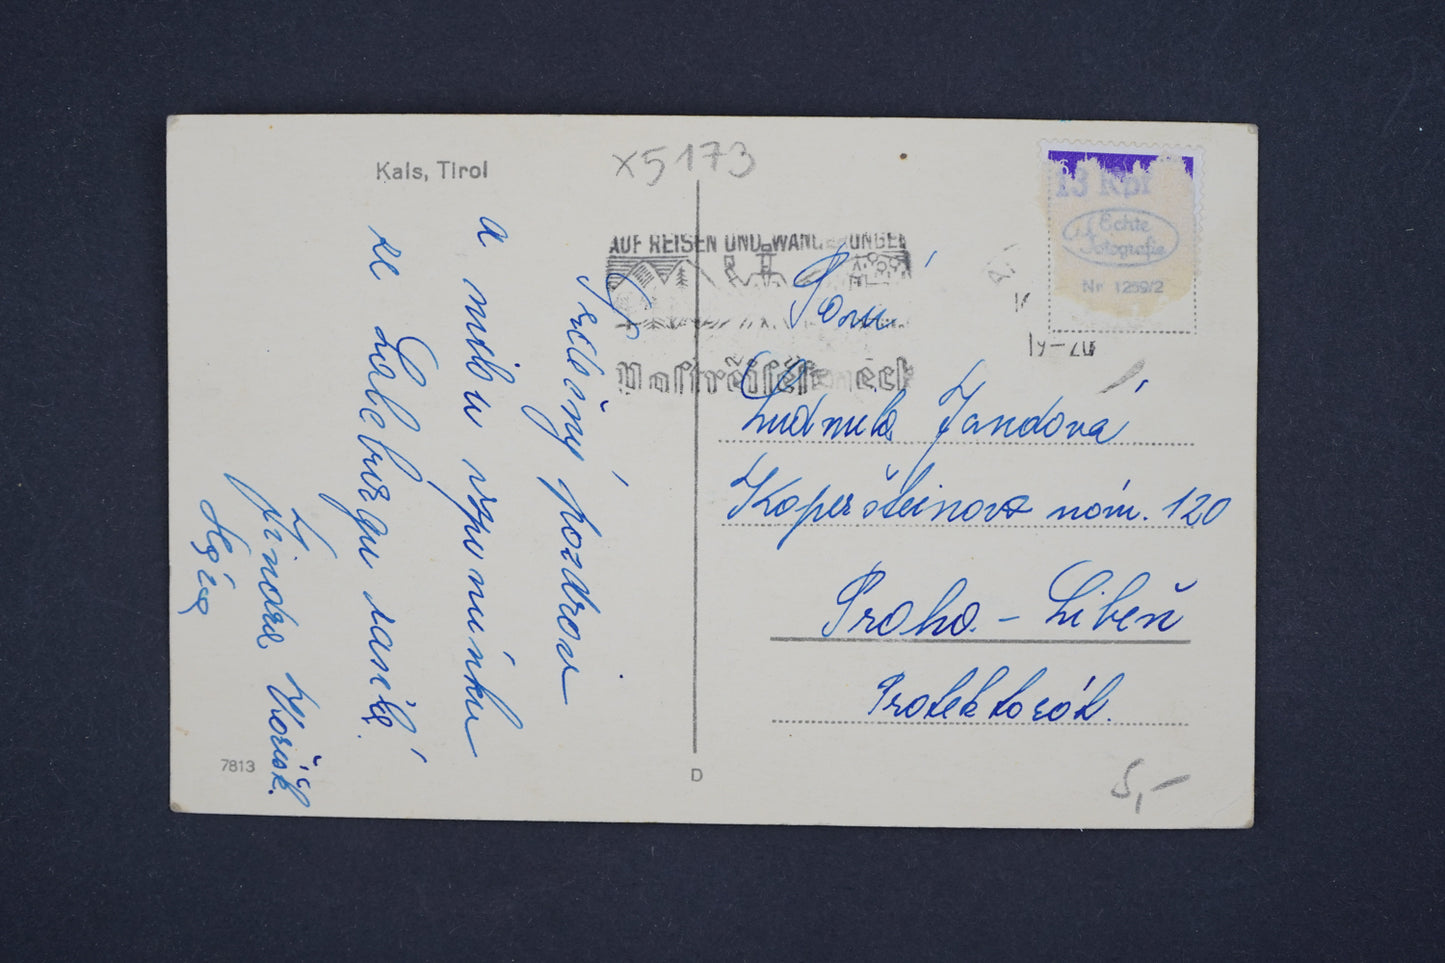 Kals, Tirol
x5173
AUF REISEN UND WANDERUNGEN
Postreisescheck
13 Rpf
Echte
Fotografie
Nr. 1259/2
Srdečný pozdrav
a milou vzpomínku
ze Salcburgu zasílá
Jindra
Paní
Ludmila Jandová
Koperšteinovo nám. 120
Praha - Libeň
Protektorát.
7813
D
5,-